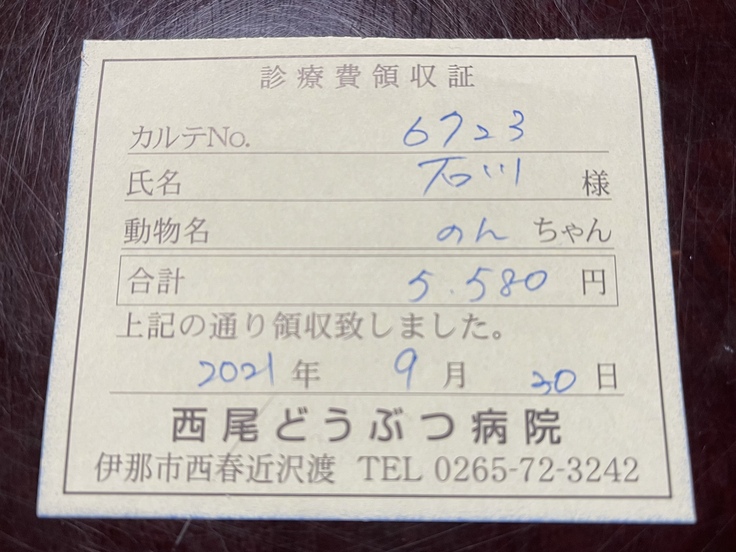 診療費領収証
カルテNo. 6723
氏名 石川 様
動物名 のん ちゃん
合計 5.580 円
上記の通り領収致しました。
2021 年 9 月 30 日
西尾どうぶつ病院
伊那市西春近沢渡 TEL 0265-72-3242